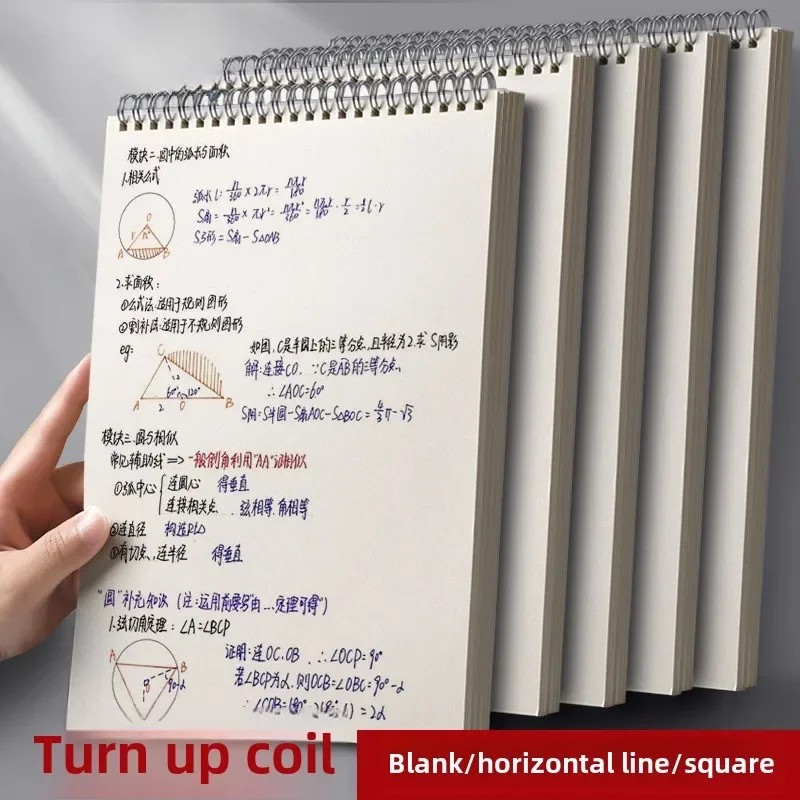 模块二.圆中的弧长与面积
1.相关公式
弧长l=n/360×2πr=nπr/180
S扇=n/360×πr²=nπr²/360=nπr/180·r/2=1/2l·r
S弓形=S扇-S△OAB
O
r
n°
A
B
2.求面积:
①公式法:适用于规则图形
②割补法:适用于不规则图形
eg:
如图,C是半圆上的三等分点,且半径为2.求S阴影
解:连接CO.∵C是AB的三等分点
∴∠AOC=60°
S阴=S半圆-S扇AOC-S△BOC=4/3π-√3
C
60°
120°
A
2
O
B
模块三.圆与相似
常见辅助线=>一般倒角利用"AA"证相似
①弧中心{连圆心 得垂直
连接相关点 弦相等.角相等
②连直径 构造Rt△
③有切点,连半径 得垂直
"圆"补充知识(注:运用前要写"由...定理可得")
1.弦切角定理:∠A=∠BCP
证明:连OC.OB.∴∠OCP=90°
若∠BCP为α.则∠OCB=∠OBC=90°-α
=2α
A
B
90-α
Turn up coil
Blank/horizontal line/square